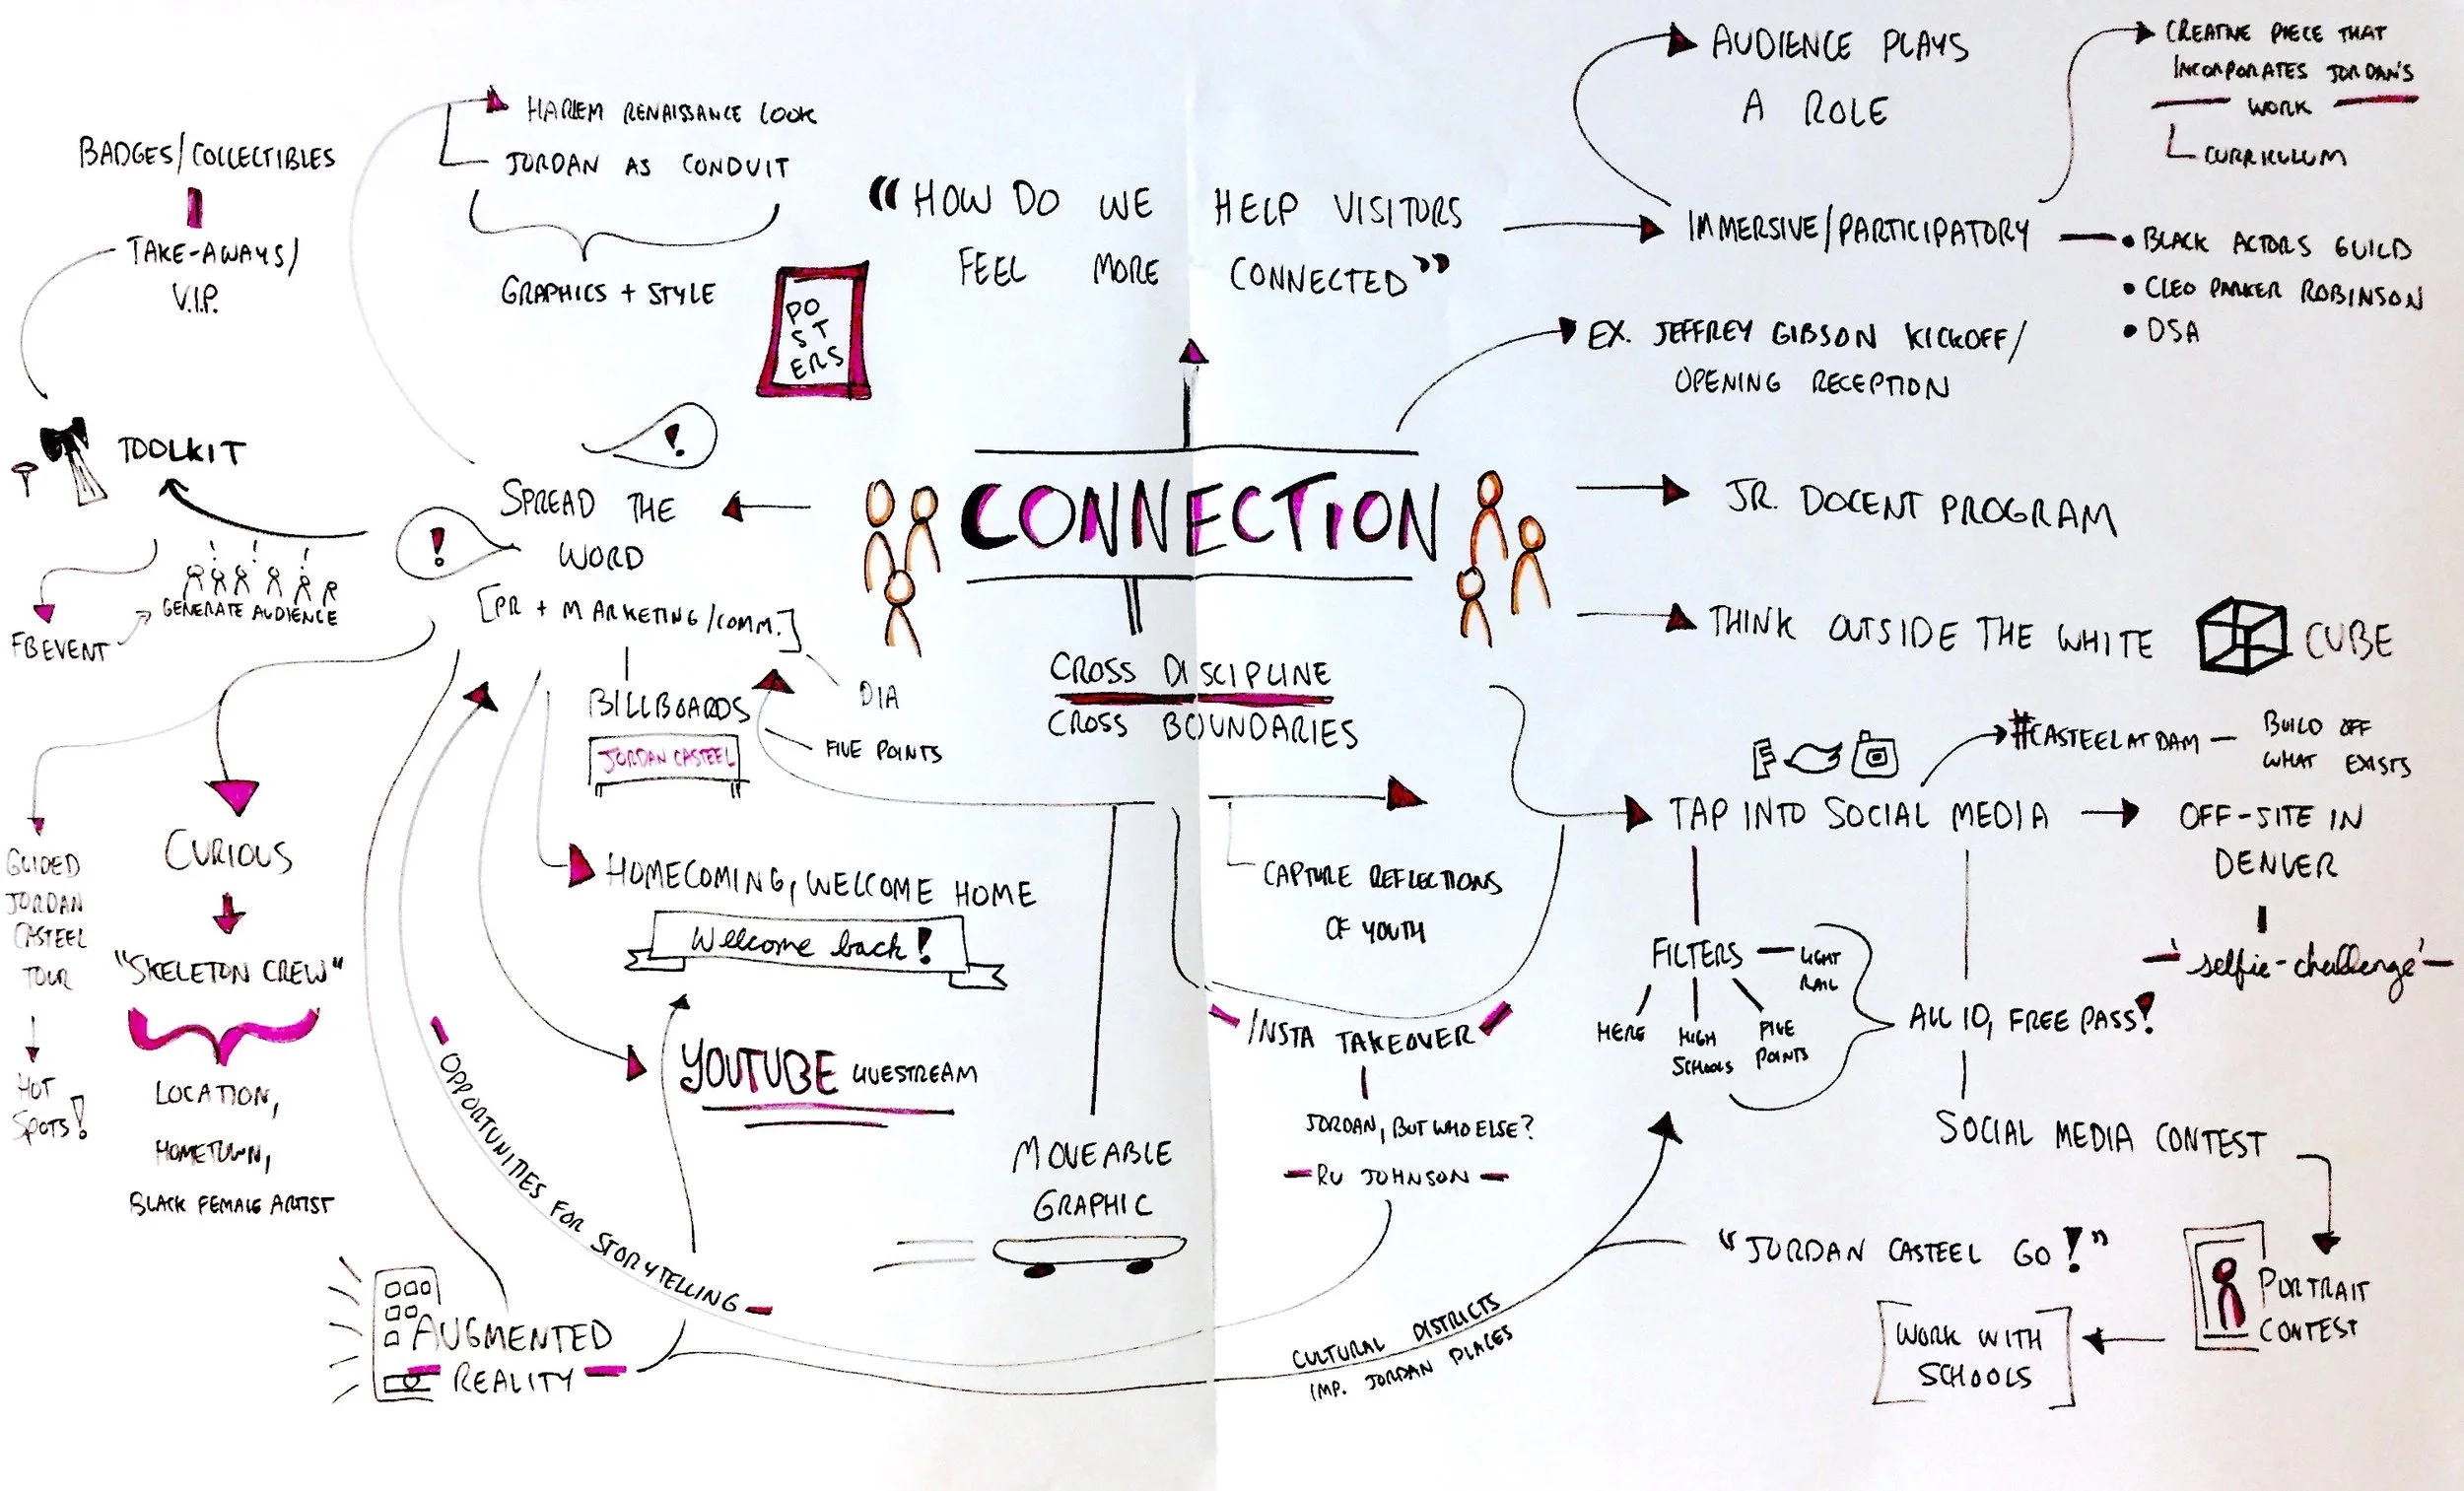 BADGES/COLLECTIBLES
TAKE-AWAYS/
V.I.P.
TOOLKIT
GENERATE AUDIENCE
FB EVENT
HARLEM RENAISSANCE LOOK
JORDAN AS CONDUIT
GRAPHICS + STYLE
PO
ST
ERS
"HOW DO WE HELP VISITORS
FEEL MORE CONNECTED"
AUDIENCE PLAYS
A ROLE
CREATIVE PIECE THAT
INCORPORATES JORDAN'S
WORK
CURRICULUM
IMMERSIVE/PARTICIPATORY
• BLACK ACTORS GUILD
• CLEO PARKER ROBINSON
• DSA
EX. JEFFREY GIBSON KICKOFF/
OPENING RECEPTION
!
SPREAD THE
WORD
!
[PR + MARKETING/COMM.]
CONNECTION
CROSS DISCIPLINE
CROSS BOUNDARIES
JR. DOCENT PROGRAM
THINK OUTSIDE THE WHITE
CUBE
BILLBOARDS
JORDAN CASTEEL
DIA
FIVE POINTS
F
#CASTEELATDAM — BUILD OFF
WHAT EXISTS
TAP INTO SOCIAL MEDIA
OFF-SITE IN
DENVER
'selfie-challenge'
GUIDED
JORDAN
CASTEEL
TOUR
HOT
SPOTS!
CURIOUS
"SKELETON CREW"
LOCATION,
HOMETOWN,
BLACK FEMALE ARTIST
HOMECOMING, WELCOME HOME
Welcome back!
YOUTUBE LIVESTREAM
CAPTURE REFLECTIONS
OF YOUTH
INSTA TAKEOVER
JORDAN, BUT WHO ELSE?
— RU JOHNSON —
FILTERS — LIGHT
RAIL
HERE
HIGH
SCHOOLS
FIVE
POINTS
ALL 10, FREE PASS!
SOCIAL MEDIA CONTEST
PORTRAIT
CONTEST
WORK WITH
SCHOOLS
"JORDAN CASTEEL GO!"
MOVEABLE
GRAPHIC
OPPORTUNITIES FOR STORYTELLING
AUGMENTED
REALITY
CULTURAL DISTRICTS
IMP. JORDAN PLACES